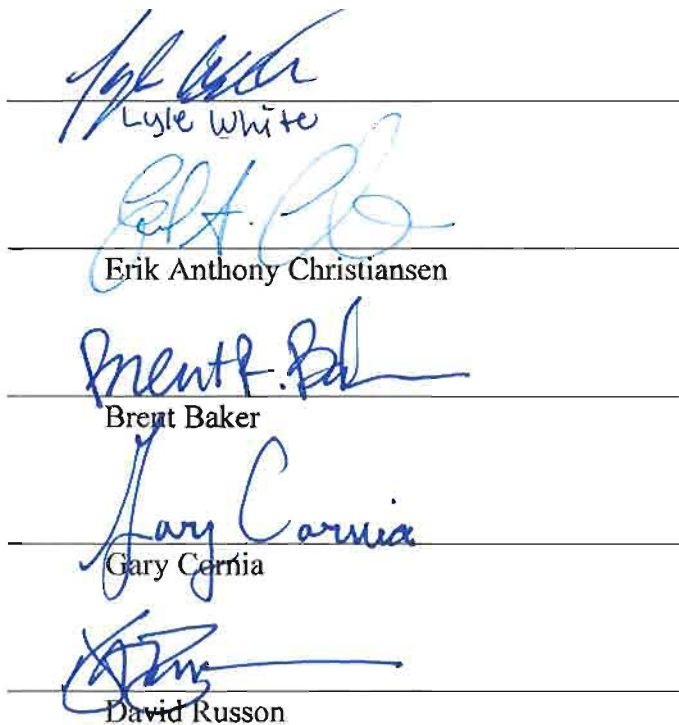 Lyle White
Erik A. C
Erik Anthony Christiansen
Brent R. Baker
Brent Baker
Gary Cornia
Gary Cornia
David Russon